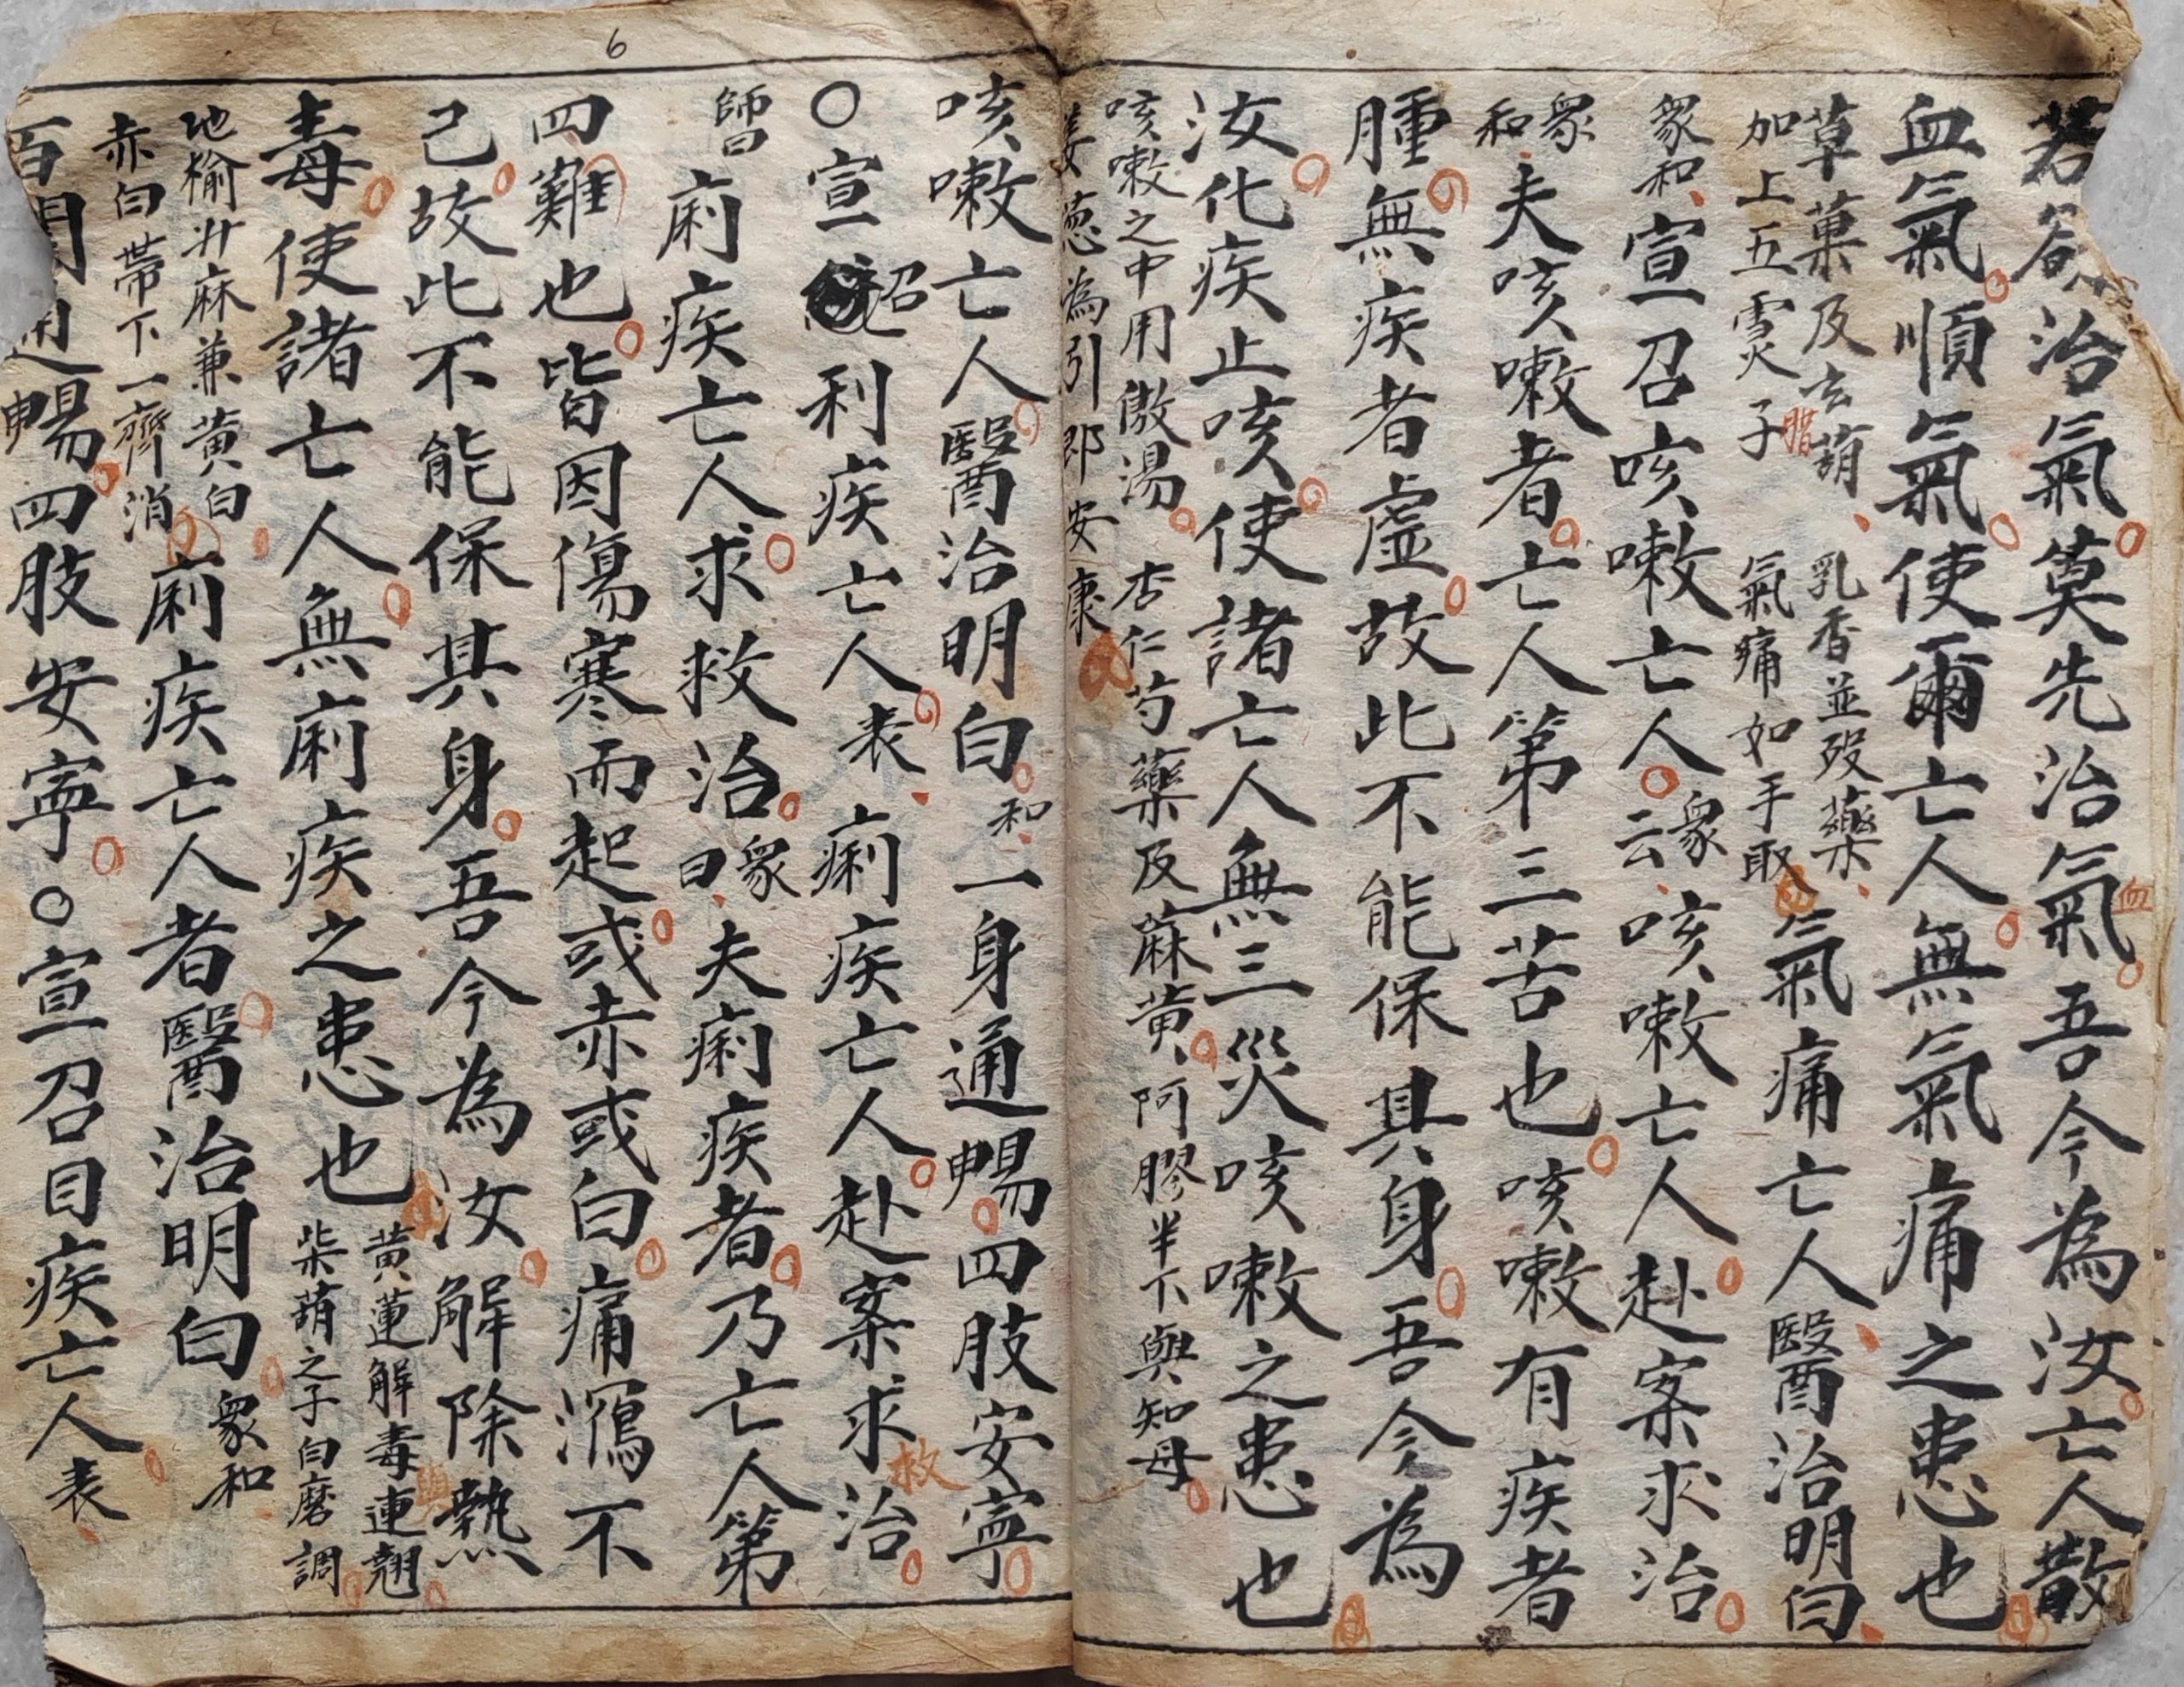 若欲治氣莫先治氣血吾今為汝亡人散
血氣順氣使爾亡人無氣痛之患也
草菓及玄葫乳香並歿藥
加上五霊子氣痛如手取
氣痛亡人醫治明白
衆和宣召咳嗽亡人衆云咳嗽亡人赴案求治
衆和夫咳嗽者亡人第三苦也咳嗽有疾者
腫無疾者虛故此不能保其身吾今為
汝化疾止咳使諸亡人無三災咳嗽之患也
咳嗽之中用傲湯杏仁芍藥及蔴黄阿膠半下與知母
姜葱為引即安康
咳嗽亡人醫治明白和一身通暢四肢安寧
○宣召利疾亡人表痢疾亡人赴案求救治
師曰痢疾亡人求救治衆曰夫痢疾者乃亡人第
四難也皆因傷寒而起或赤或白痛瀉不
己故此不能保其身吾今為汝解除熱
毒使諸亡人無痢疾之患也
黄蓮解毒與連翹
柴葫之子白磨調
地榆升麻兼黄白
赤白帶下一齊消
痢疾亡人者醫治明白衆和
百関通暢四肢安寧○宣召目疾亡人表
6